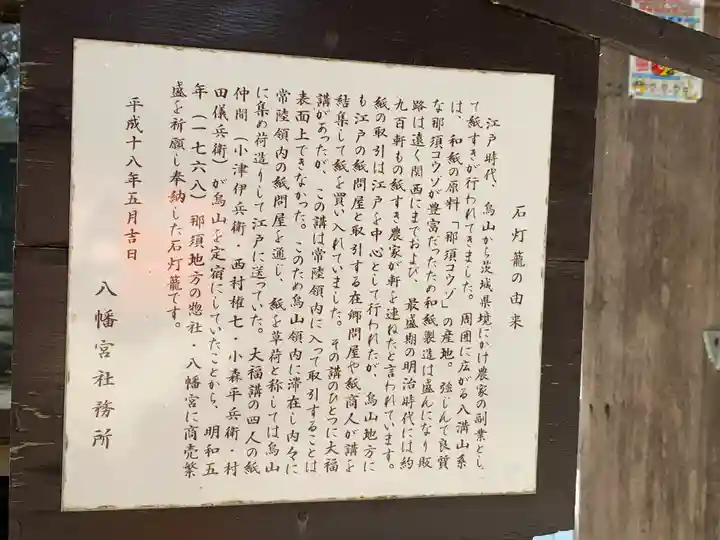 石灯籠の由来
江戸時代、烏山から茨城県境にかけ農家の副業とし
て紙すきが行われてきました。周囲に広がる八溝山系
は、和紙の原料「那須コウゾ」の産地。強じんで良質
な那須コウゾが豊富だったため和紙製造は盛んになり販
路は遠く関西にまでおよび、最盛期の明治時代には約
九百軒もの紙すき農家が軒を連ねたと言われています。
紙の取引は江戸を中心として行われたが、烏山地方に
も江戸の紙問屋と取引する在郷問屋や紙商人が講を
結集して紙を買い入れていました。その講のひとつに大福
講があったが、この講は常陸領内に入って取引することは
表面上できなかった。このため烏山領内に滞在し内々に
常陸領内の紙問屋を通じ、紙を草荷と称しては烏山
に集め荷造りして江戸に送っていた。大福講の四人の紙
仲間（小津伊兵衛・西村権七・小森平兵衛・村
田儀兵衛）が烏山を定宿にしていたことから、明和五
年（一七六八）那須地方の惣社・八幡宮に商売繁
盛を祈願し奉納した石灯籠です。
平成十八年五月吉日
八幡宮社務所